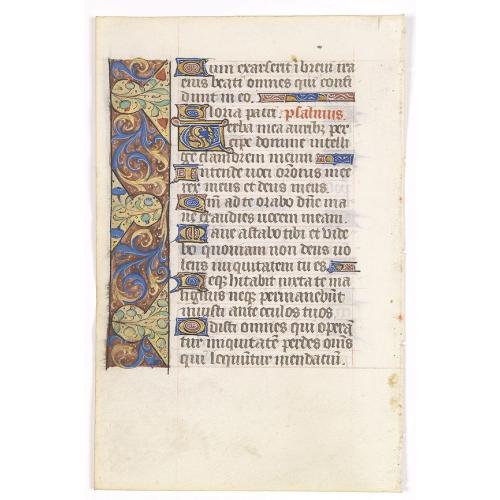 Cum exarserit i brevi ira
eius beati omnes qui confi
dunt in eo.
Gloria patri. psalmus.
Verba mea auribꝫ per
cipe domine intelli
ge clamorem meum
Intende voci orōnis mee
rex meus et deus meus.
Qm̄ ad te orabo dn̄e ma
ne exaudies vocem meam.
Mane astabo tibi et vide
bo quoniam non deus vo
lens iniquitatem tu es.
Neqꝫ hītabit iuxta te ma
lignus neqꝫ permanebūt
iniusti ante oculos tuos.
Odisti omnes qui operā
tur iniquitatē perdes om̄s
qui loquūtur mendaciū.